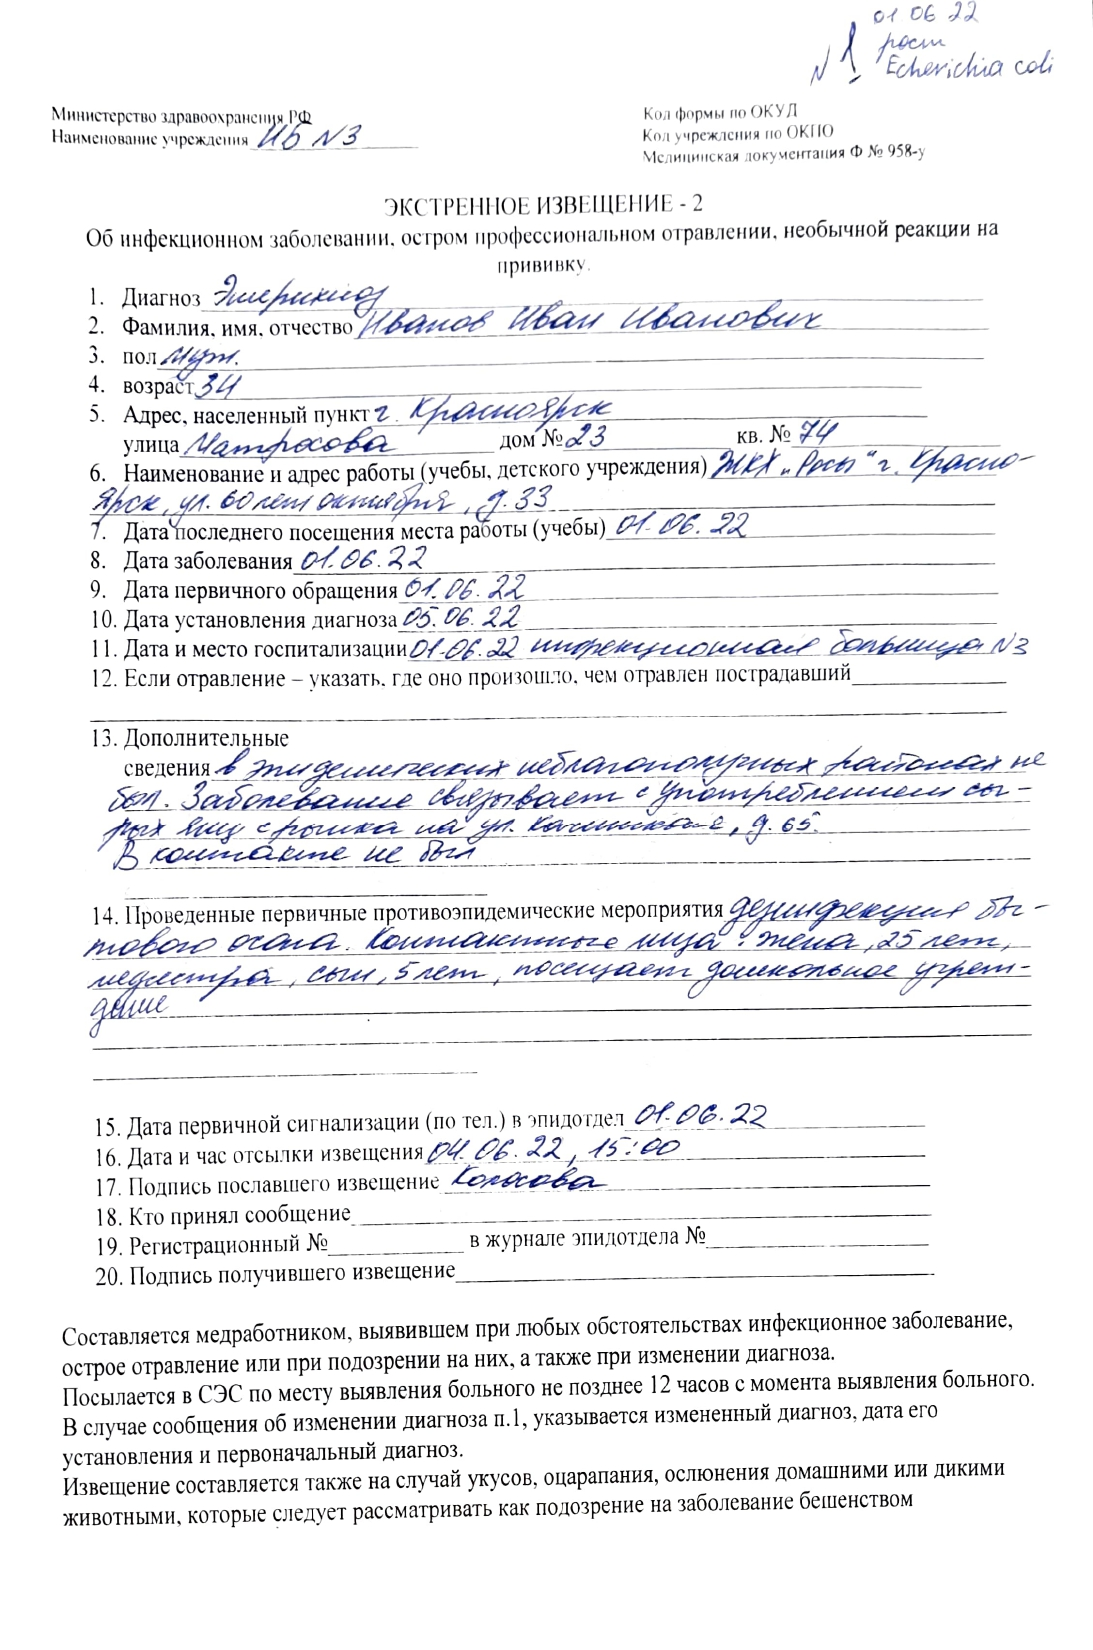 01 06 22
рост
N 1 Echerichia coli
Министерство здравоохранения РФ
Наименование учреждения ИБ N3
Код формы по ОКУД
Код учреждения по ОКПО
Медицинская документация Ф № 958-у
ЭКСТРЕННОЕ ИЗВЕЩЕНИЕ - 2
Об инфекционном заболевании, остром профессиональном отравлении, необычной реакции на
прививку.
1. Диагноз Эшерихиоз
2. Фамилия, имя, отчество Иванов Иван Иванович
3. пол муж.
4. возраст 34
5. Адрес, населенный пункт г. Красноярск
улица Матросова дом № 23 кв. № 74
6. Наименование и адрес работы (учебы, детского учреждения) ЖКХ „Росы" г. Красно-
ярск, ул. 60 лет октября, д. 33
7. Дата последнего посещения места работы (учебы) 01.06.22
8. Дата заболевания 01.06.22
9. Дата первичного обращения 01.06.22
10. Дата установления диагноза 05.06.22
11. Дата и место госпитализации 01.06.22 инфекционная больница N3
12. Если отравление – указать, где оно произошло, чем отравлен пострадавший
13. Дополнительные
сведения в эпидемических неблагополучных районах не
был. Заболевание связывает с употреблением сы-
рых яиц с рынка на ул. д. 65.
В контакте не был
14. Проведенные первичные противоэпидемические мероприятия дезинфекция бы-
тового очага. Контактные лица: жена, 25 лет,
медсестра, сын, 5 лет, посещает дошкольное учреж-
дение
15. Дата первичной сигнализации (по тел.) в эпидотдел 01.06.22
16. Дата и час отсылки извещения 04.06.22, 15:00
17. Подпись пославшего извещение Колосова
18. Кто принял сообщение
19. Регистрационный № в журнале эпидотдела №
20. Подпись получившего извещение
Составляется медработником, выявившем при любых обстоятельствах инфекционное заболевание,
острое отравление или при подозрении на них, а также при изменении диагноза.
Посылается в СЭС по месту выявления больного не позднее 12 часов с момента выявления больного.
В случае сообщения об изменении диагноза п.1, указывается измененный диагноз, дата его
установления и первоначальный диагноз.
Извещение составляется также на случай укусов, оцарапания, ослюнения домашними или дикими
животными, которые следует рассматривать как подозрение на заболевание бешенством